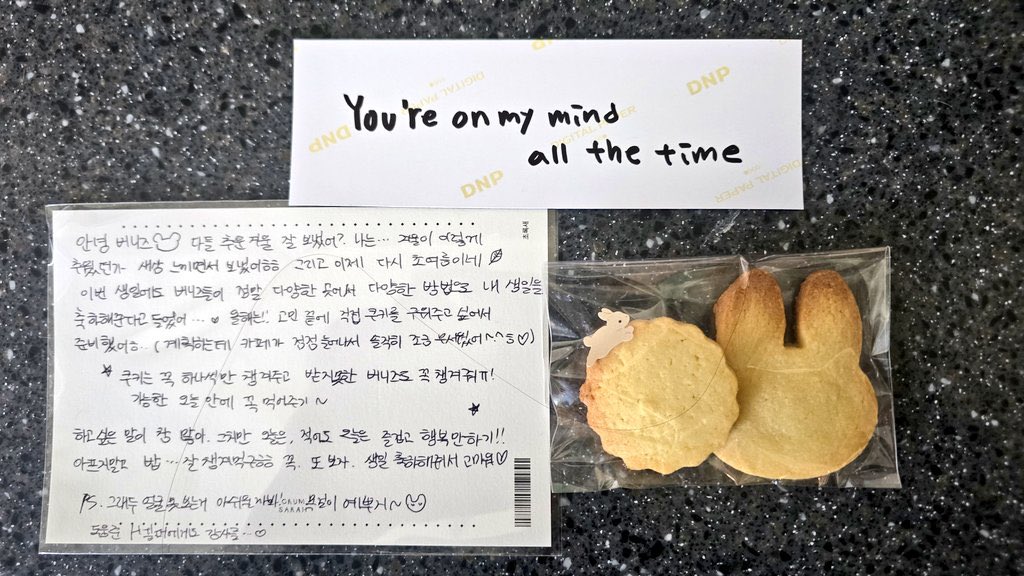 You're on my mind
all the time
DNP
DIGITAL PAPER
DNP
DIGITAL PAPER
DNP
DIGITAL PAPER
초록새
안녕 버니즈 다들 추운 겨울 잘 보냈어? 나는... 겨울이 이렇게
추웠던가 새삼 느끼면서 보냈어ㅎㅎ 그리고 이제 다시 초여름이네
이번 생일에도 버니즈들이 정말 다양한 곳에서 다양한 방법으로 내 생일을
축하해준다고 들었어... ♡ 올해는! 고민 끝에 직접 쿠키를 구워주고 싶어서
준비했어ㅎㅎ.. (계획하는데 카페가 점점 늘어나서 솔직히 조금 ^^;; ♡)
★ 쿠키는 꼭 하나씩만 챙겨주고 받지못한 버니즈도 꼭 챙겨줘ㅠ!
가능한 오늘 안에 꼭 먹어주기~
하고싶은 말이 참 많아. 그치만 오늘은, 적어도 오늘은 즐겁고 행복만하기!!
아프지말고 밥... 잘 챙겨먹구ㅎㅎ 꼭. 또 보자. 생일 축하해줘서 고마워♡
PS. 그래두 얼굴 못보는게 아쉬우니까 예쁘지~
GRUM
SARAH
도움준